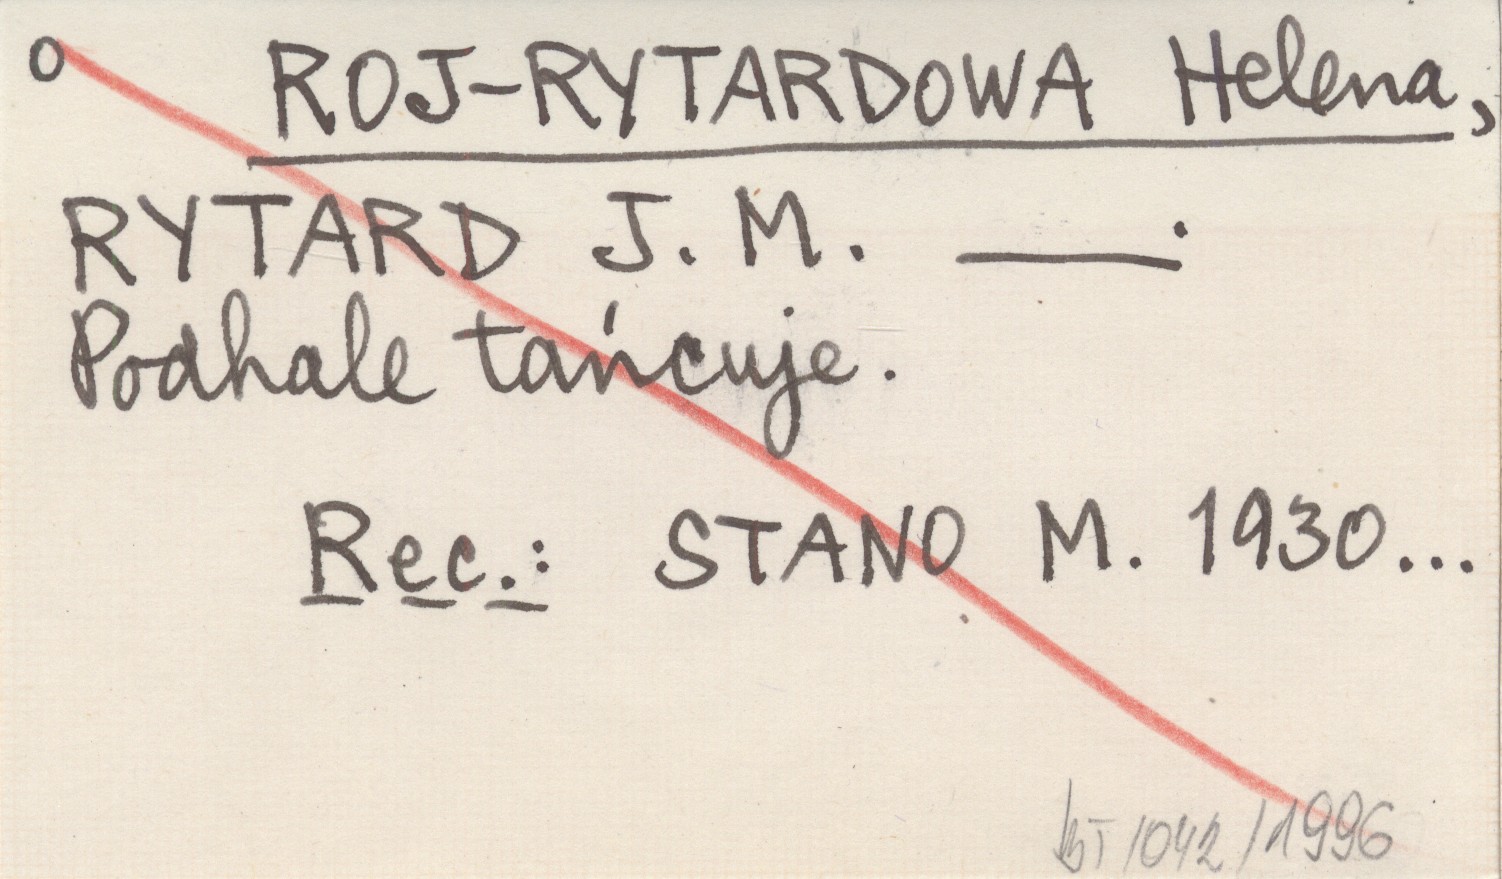 o ROJ-RYTARDOWA Helena,
RYTARD J. M. ——.
Podhale tańcuje.
Rec.: STANO M. 1930...
BT/042/1996